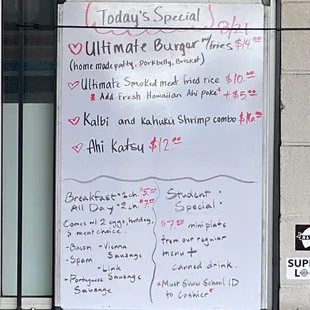 Today's Special
8/21
Ultimate Burger w/fries $14.00
(home made patty, Porkbelly, Brisket)
Ultimate Smoked meat fried rice $10.00
* Add Fresh Hawaiian Ahi poke* + $5.00
Kalbi and Kahuku Shrimp combo
Ahi Katsu $12.00
Breakfast
All Day
Comes w/ 2 eggs, hotdog,
& meat choice.
- Bacon
- Spam
- Portuguese Sausage
- Vienna Sausage
- Link Sausage
Student
Special:
mini plate
from our regular
menu +
canned drink.
*Must Show School ID
to Cashier*
SUP
LO